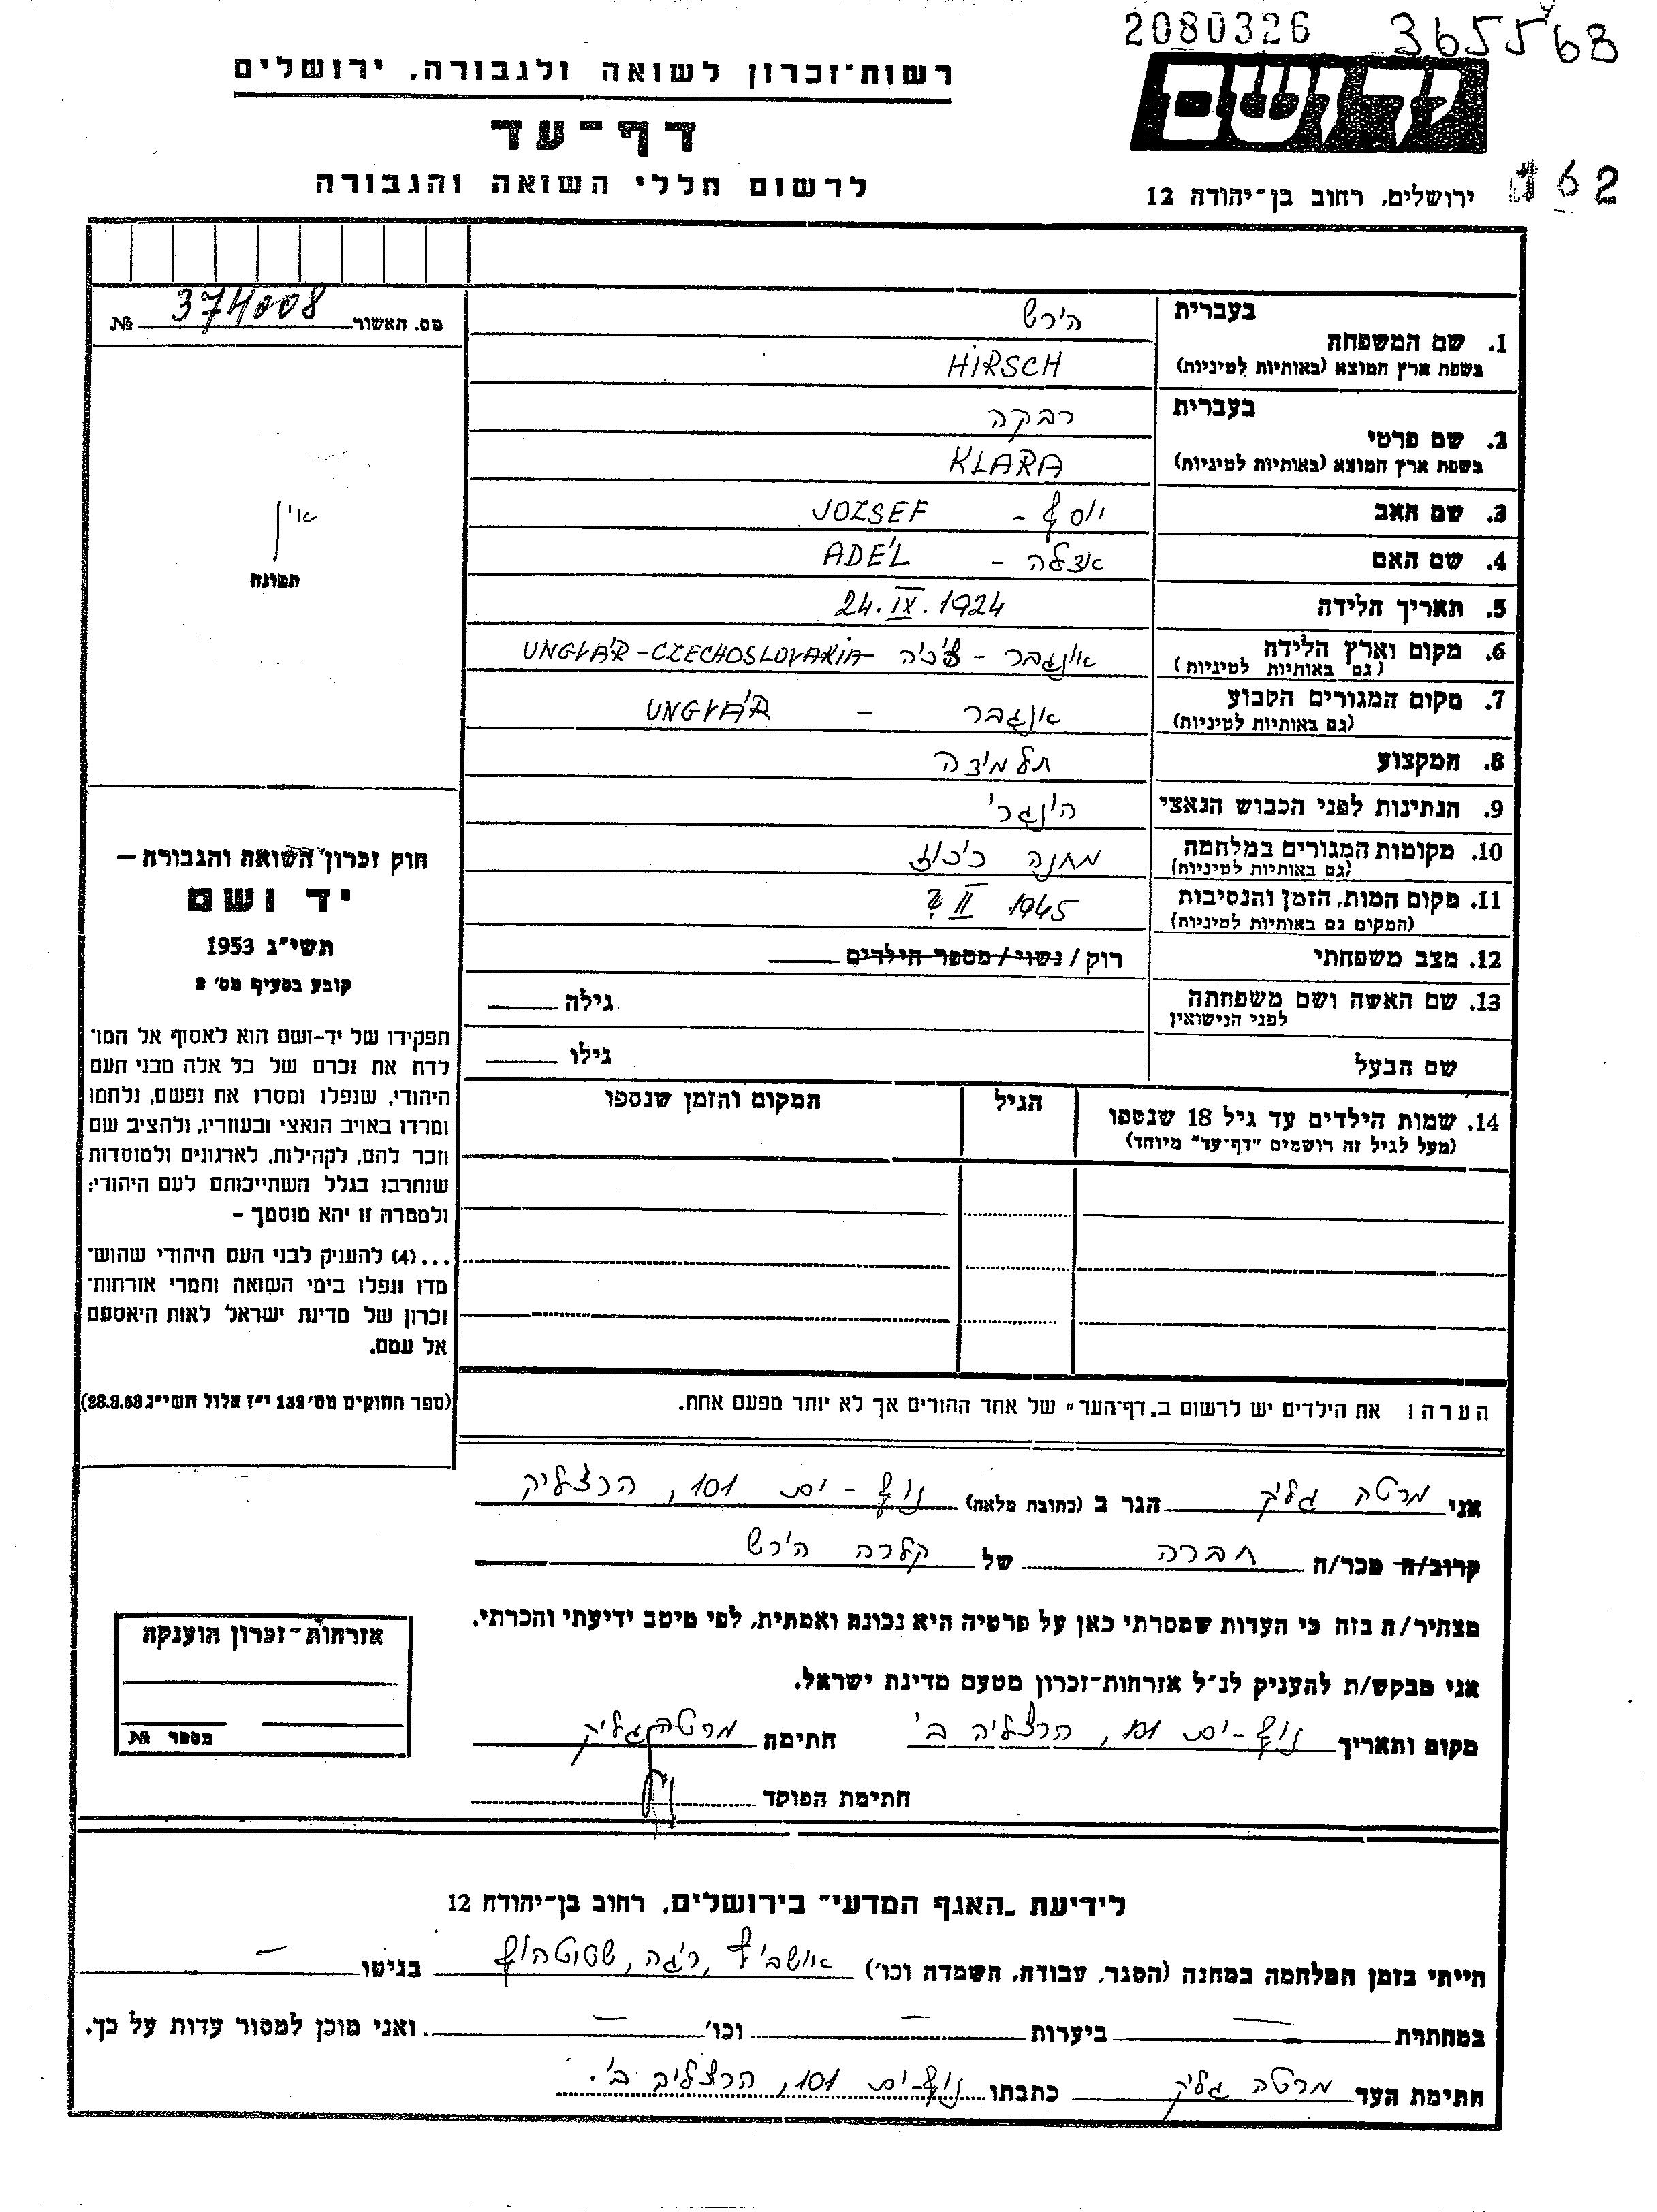 2080326 365563
רשות־זכרון לשואה ולגבורה, ירושלים
יד ושם
דף־עד
לרשום חללי השואה והגבורה
ירושלים, רחוב בן־יהודה 12
62
מס. האשור 374008 №
בעברית הירש
1. שם המשפחה
בשפת ארץ המוצא (באותיות לטיניות) HIRSCH
בעברית רבקה
2. שם פרטי
בשפת ארץ המוצא (באותיות לטיניות) KLARA
3. שם האב יוסף - JOZSEF
4. שם האם אדלה - ADÉL
5. תאריך הלידה 24.IX.1924
6. מקום וארץ הלידה אונגבר - צ'כיה UNGVÁR-CZECHOSLOVAKIA
(גם באותיות לטיניות)
7. מקום המגורים הקבוע אונגבר - UNGVÁR
(גם באותיות לטיניות)
8. המקצוע תלמידה
9. הנתינות לפני הכבוש הנאצי הונגרי
10. מקומות המגורים במלחמה מחנה ריכוז
(גם באותיות לטיניות)
11. מקום המות, הזמן והנסיבות 1945 II ?
(המקום גם באותיות לטיניות)
12. מצב משפחתי רוק / נשוי / מספר הילדים
13. שם האשה ושם משפחתה גילה
לפני הנישואין
שם הבעל גילו
14. שמות הילדים עד גיל 18 שנספו הגיל המקום והזמן שנספו
(מעל לגיל זה רושמים "דף־עד" מיוחד)
אין
תמונה
חוק זכרון השואה והגבורה –
יד ושם
תשי"ג 1953
קובע בסעיף מס' 2
תפקידו של יד-ושם הוא לאסוף אל המו־
לדת את זכרם של כל אלה מבני העם
היהודי, שנפלו ומסרו את נפשם, נלחמו
ומרדו באויב הנאצי ובעוזריו, ולהציב שם
וזכר להם, לקהילות, לארגונים ולמוסדות
שנחרבו בגלל השתייכותם לעם היהודי;
ולמטרה זו יהא מוסמך –
...(4) להעניק לבני העם היהודי שהוש־
מדו ונפלו בימי השואה והמרי אזרחות־
זכרון של מדינת ישראל לאות היאספם
אל עמם.
(ספר החוקים מס' 132 י"ז אלול תשי"ג 28.8.53)
הערה: את הילדים יש לרשום ב„דף־העד" של אחד ההורים אך לא יותר מפעם אחת.
אני מרטה גליק הגר ב (כתובת מלאה) נוף-ים 101, הרצליה
קרוב/ה מכר/ה חברה של קלרה הירש
מצהיר/ה בזה כי העדות שמסרתי כאן על פרטיה היא נכונה ואמתית, לפי מיטב ידיעתי והכרתי.
אני מבקש/ת להעניק לנ"ל אזרחות־זכרון מטעם מדינת ישראל.
מקום ותאריך נוף-ים 101, הרצליה ב' חתימה מרטה גליק
חתימת הפוקד
אזרחות־זכרון הוענקה
מספר №
לידיעת „האגף המדעי" בירושלים, רחוב בן־יהודה 12
הייתי בזמן המלחמה במחנה (הסגר, עבודה, השמדה וכו') אושביץ, ריגה, שטוטהוף בגיטו –
במחתרת – ביערות – וכו' – ואני מוכן למסור עדות על כך.
חתימת העד מרטה גליק כתבתו נוף-ים 101, הרצליה ב'.